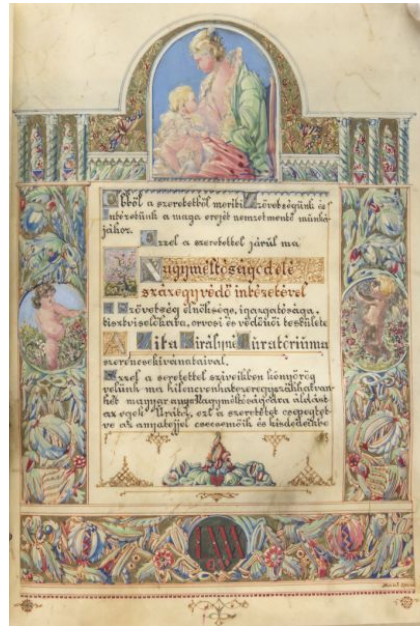 Ebből a szeretetből meríti Szövetségünk és
Intézetünk a maga erejét nemzetmentő munká-
jához.
Ezzel a szeretettel járul ma
Nagyméltóságod elé
százegy védő intézetével
A Szövetség elnöksége, igazgatósága,
tisztviselőkara, orvosi és védőnői testülete
A Zita Királyné Kuratóriuma
szerencsekívánataival.
Ezzel a szeretettel szíveikben könyörög
velünk ma kilencvenhatezeregyszázhatvan-
hét magyar anya Nagyméltóságodra áldást
az egek Urától, ezt a szeretetet csepegtet-
ve az anyatejjel csecsemőik és kisdedeikbe
LXXX